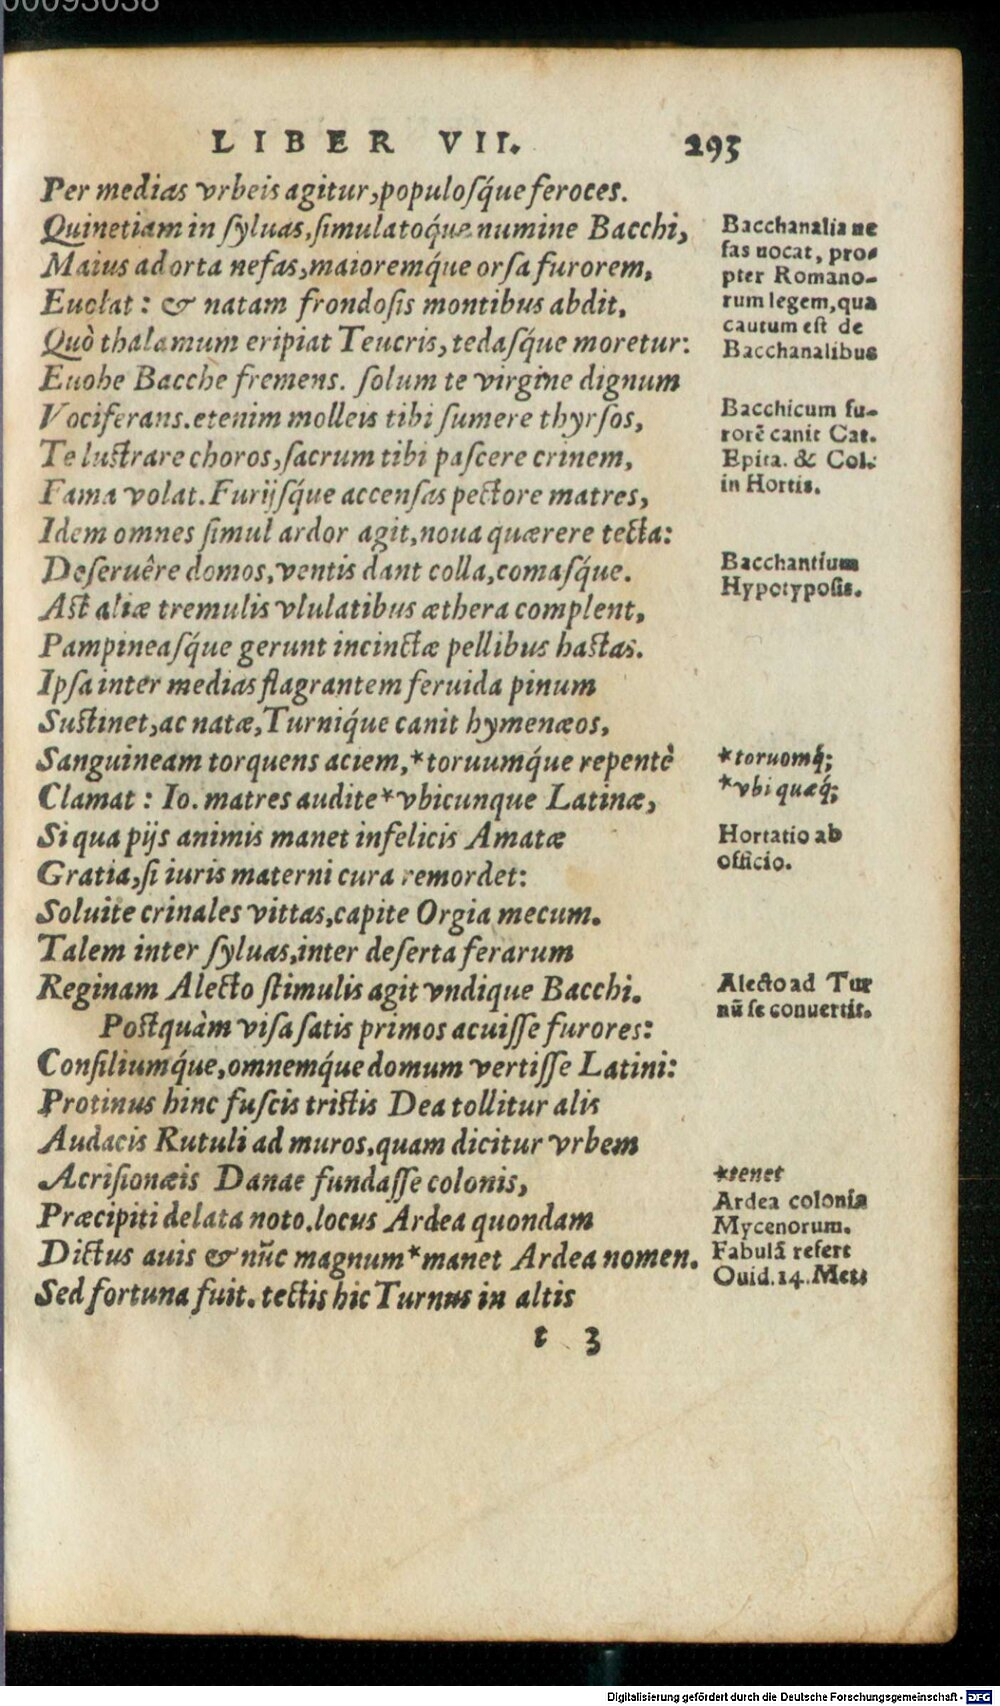 00093038
LIBER VII. 295
Per medias vrbeis agitur,populosq́ue feroces.
Quinetiam in ſyluas,ſimulatoq́ue numine Bacchi,
Maius adorta nefas,maioremq́ue orſa furorem,
Euolat: & natam frondoſis montibus abdit,
Quò thalamum eripiat Teucris,tedaſq́ue moretur:
Euohe Bacche fremens. ſolum te virgine dignum
Vociferans.etenim molleis tibi ſumere thyrſos,
Te luſtrare choros,ſacrum tibi paſcere crinem,
Fama volat.Furijſq́ue accenſas pectore matres,
Idem omnes ſimul ardor agit,noua quærere tecta:
Deſeruêre domos,ventis dant colla,comaſq́ue.
Aſt aliæ tremulis vlulatibus æthera complent,
Pampineaſq́ue gerunt incinctæ pellibus haſtas.
Ipſa inter medias flagrantem feruida pinum
Suſtinet,ac natæ,Turniq́ue canit hymenæos,
Sanguineam torquens aciem,*toruumq́ue repentè
Clamat: Io.matres audite*vbicunque Latinæ,
Si qua pijs animis manet infelicis Amatæ
Gratia,ſi iuris materni cura remordet:
Soluite crinales vittas,capite Orgia mecum.
Talem inter ſyluas,inter deſerta ferarum
Reginam Alecto ſtimulis agit vndique Bacchi.
Poſtquàm viſa ſatis primos acuiſſe furores:
Conſiliumq́ue,omnemq́ue domum vertiſſe Latini:
Protinus hinc fuſcis triſtis Dea tollitur alis
Audacis Rutuli ad muros,quam dicitur vrbem
Acriſionæis Danae fundaſſe colonis,
Præcipiti delata noto.locus Ardea quondam
Dictus auis & nũc magnum*manet Ardea nomen.
Sed fortuna fuit.tectis hic Turnus in altis
t 3
Bacchanalia ne
fas uocat, pro-
pter Romano-
rum legem,qua
cautum eſt de
Bacchanalibus
Bacchicum fu-
rorẽ canit Cat.
Epita. & Col.
in Hortis.
Bacchantium
Hypotypoſis.
*toruomq́;
*vbi quæq́;
Hortatio ab
officio.
Alecto ad Tur
nũ ſe conuertit.
*tenet
Ardea colonia
Mycenorum.
Fabulã refert
Ouid.14.Met.
Digitalisierung gefördert durch die Deutsche Forschungsgemeinschaft - DFG